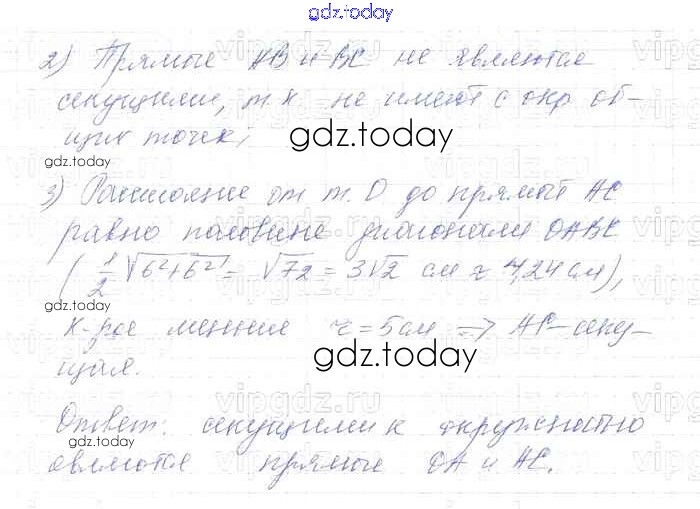 gdz.today
2) Прямые AB и BC не являются
секущими, т.к не имеют с окр об-
щих точек;
gdz.today
gdz.today
3) Расстояние от т. O до прямой AC
равно половине диагонали OABC
(1/2 √6²+6² = √72 = 3√2 см ≈ 4,24 см),
gdz.today
к-рое меньше r = 5 см => AC – секу-
щая.
gdz.today
Ответ: секущими к окружностью
gdz.today
являются прямые OA и AC.